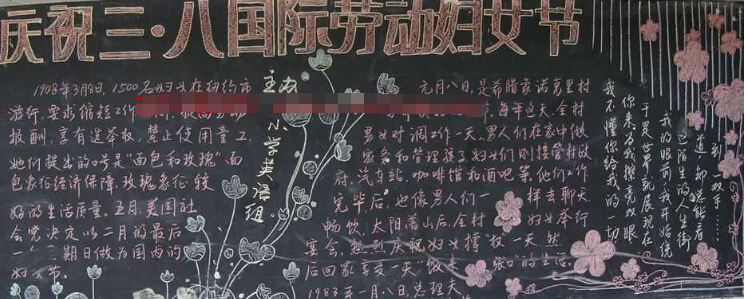 庆祝三·八国际劳动妇女节
1908年3月8日,1500名妇女在纽约市
游行,要求缩短工作
报酬,享有选举权,禁止使用童工
她们提出的口号是“面包和玫瑰”面
包象征经济保障,玫瑰象征较
好的生活质量。五月,美国社
会党决定以二月的最后
一 日期做为国内的
妇女节。
主办
小学英语组
元月八日,是希腊莱诺克里村
每年这天,全村
男女对调工作一天,男人们在家中做
家务和管理孩子,妇女们则接管村政
府,汽车站,咖啡馆和酒吧等,他们工作
完毕后,也像男人们一样去聊天
畅饮,太阳落山后,全村妇女举行
宴会,热烈庆祝妇女掌权一天,然
后回家享受一天
1983年一月八日,总理夫
我不懂你给我的一切
你来为我擦亮双眼
于是世界就展现在
我的眼前,我开始绕
过陌生的人生街
道,却总能看
到双手……